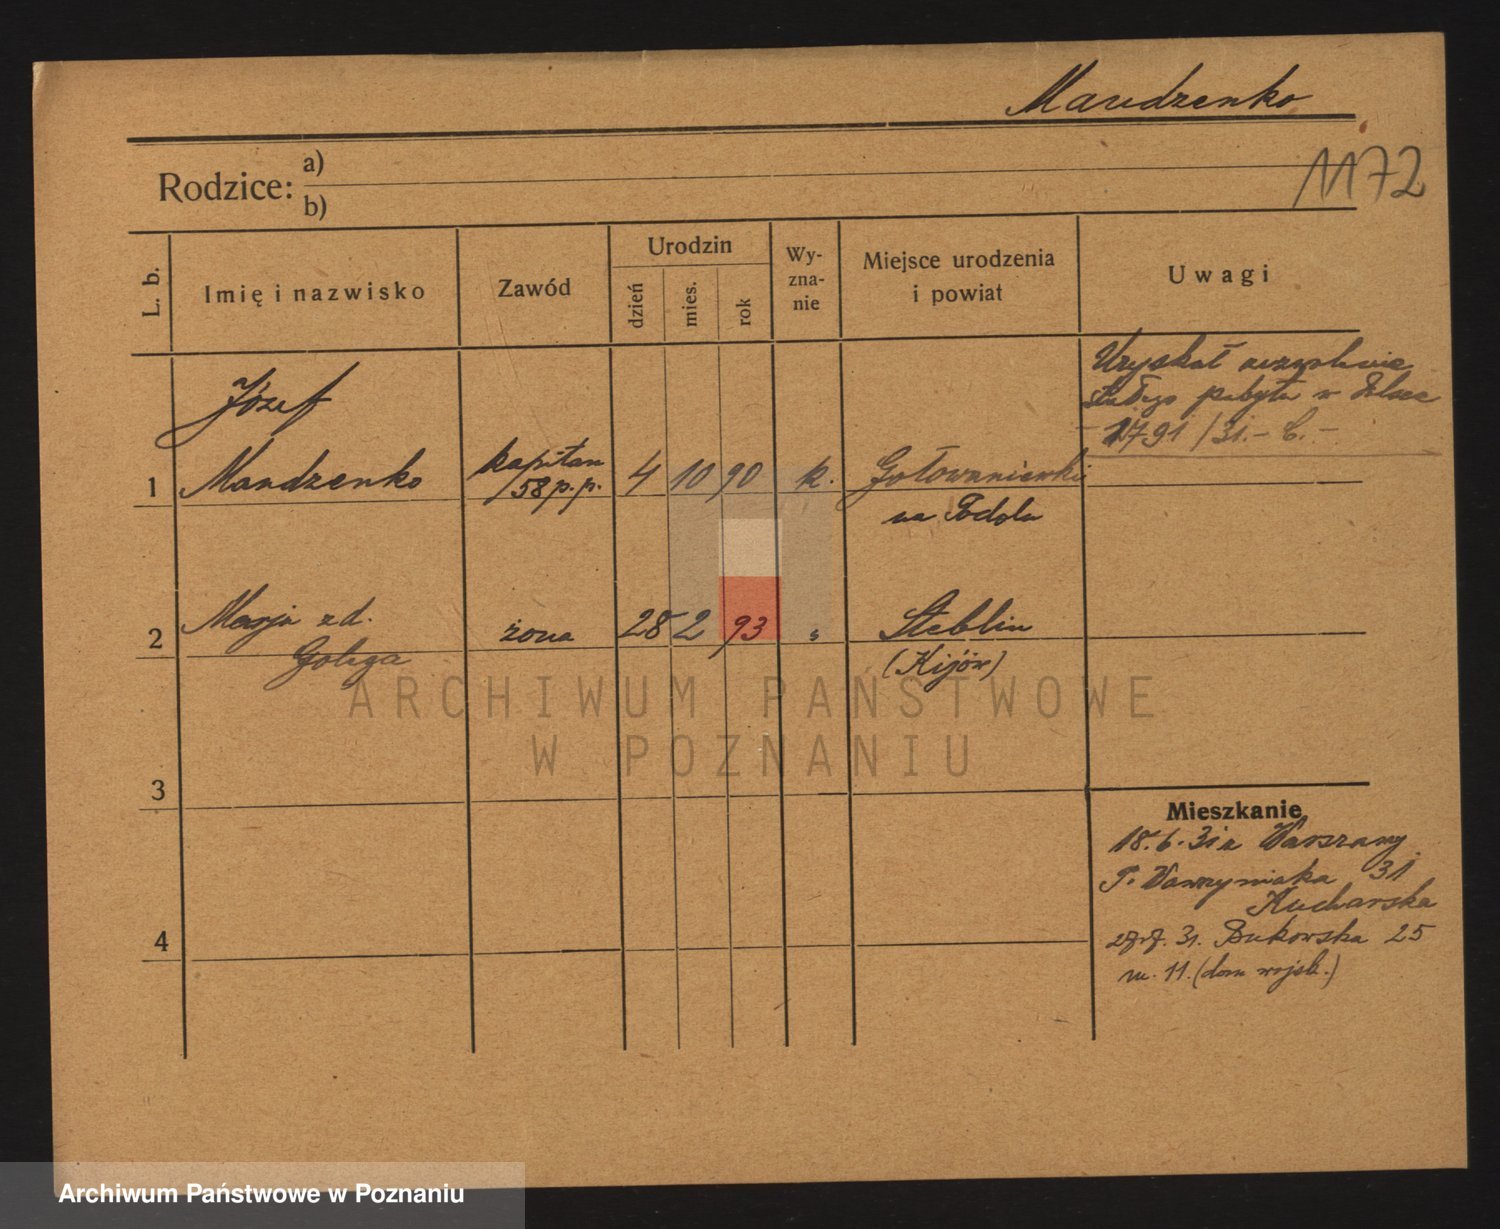 Mandzenko
1172
Rodzice:
a)
b)
L. b.
Imię i nazwisko
Zawód
Urodzin
dzień
mies.
rok
Wy-
zna-
nie
Miejsce urodzenia
i powiat
Uwagi
Uzyskał zezwolenie
stałego pobytu w Polsce
1791/31.-
Józef
1 Mandzenko kapitan 4 10 90 k.
58 p.p.
na Podolu
2 Marja zd. żona 28 2 93 „ Steblin
(Kijów)
3
4
Mieszkanie
18.6.31 z Warszawy
Wawrzyniaka 31
Kucharska
31. Bukowska 25
m. 11. (dom wojsk.)
ARCHIWUM PAŃSTWOWE
W POZNANIU
Archiwum Państwowe w Poznaniu